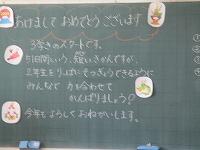 あけまして おめでとう ございます
3学きのスタートです。
51日間という、短いきかんですが、
2年生をりっぱにそつぎょうできるように
みんなで 力を合わせて
がんばりましょう?
今年もよろしくおねがいします。